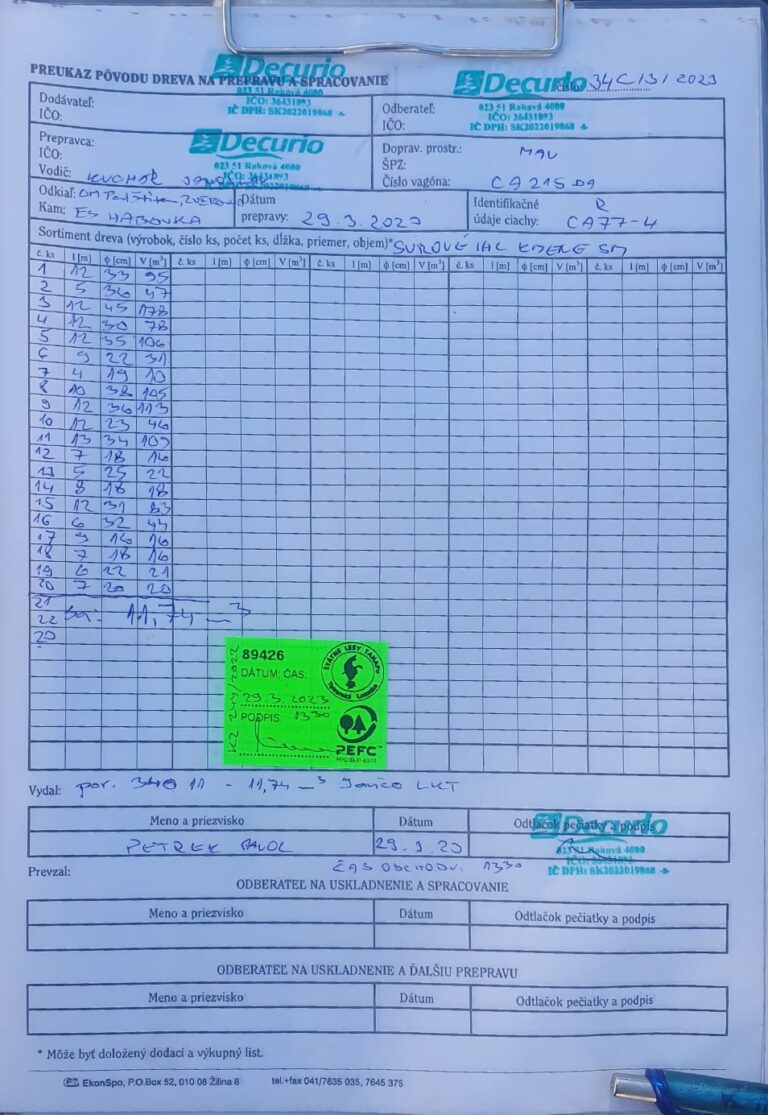 PREUKAZ PÔVODU DREVA NA PREPRAVU A SPRACOVANIE
Decurio
023 51 Raková 4000
IČO: 36431893
IČ DPH: SK2022019868
Decurio
34C/3/2023
023 51 Raková 4000
IČO: 36431893
IČ DPH: SK2022019868
Dodávateľ:
IČO:
Odberateľ:
IČO:
Prepravca:
IČO:
Vodič: KUCHÁR
Decurio
023 51 Raková 4000
IČO: 36431893
Doprav. prostr.: MAN
ŠPZ:
Číslo vagóna: CA215DA
Odkiaľ:
Kam: ES HABOVKA
Dátum
prepravy: 29.3.2023
Identifikačné R
údaje ciachy: CA77-4
Sortiment dreva (výrobok, číslo ks, počet ks, dĺžka, priemer, objem)* SUROVÉ IHL KMENE SM
č. ks l [m] ϕ [cm] V [m³] č. ks l [m] ϕ [cm] V [m³] č. ks l [m] ϕ [cm] V [m³] č. ks l [m] ϕ [cm] V [m³] č. ks l [m] ϕ [cm] V [m³]
1 12 33 95
2 5 36 47
3 12 45 178
4 12 30 78
5 12 35 106
6 9 22 31
7 4 19 10
8 10 38 105
9 12 36 113
10 12 23 46
11 13 34 109
12 7 18 16
13 5 25 22
14 8 18 18
15 12 31 83
16 6 32 44
17 9 16 16
18 7 18 16
19 6 22 21
20 7 20 20
21
22 11,74 m³
23
89426
DÁTUM, ČAS:
29.3.2023
PODPIS: 1330
ŠTÁTNE LESY TANAPU
Tatranská Lomnica
PEFC
Vydal: por. 340 11 - 11,74 m³ LKT
Meno a priezvisko Dátum Odtlačok pečiatky a podpis
PETREK PAVOL 29.3.23
Decurio
023 51 Raková 4000
IČO: 36431893
IČ DPH: SK2022019868
Prevzal: ČAS ODCHODU: 1330
ODBERATEĽ NA USKLADNENIE A SPRACOVANIE
Meno a priezvisko Dátum Odtlačok pečiatky a podpis
ODBERATEĽ NA USKLADNENIE A ĎALŠIU PREPRAVU
Meno a priezvisko Dátum Odtlačok pečiatky a podpis
* Môže byť doložený dodací a výkupný list.
EkonSpo, P.O.Box 52, 010 08 Žilina 8 tel.+fax 041/7635 035, 7645 375